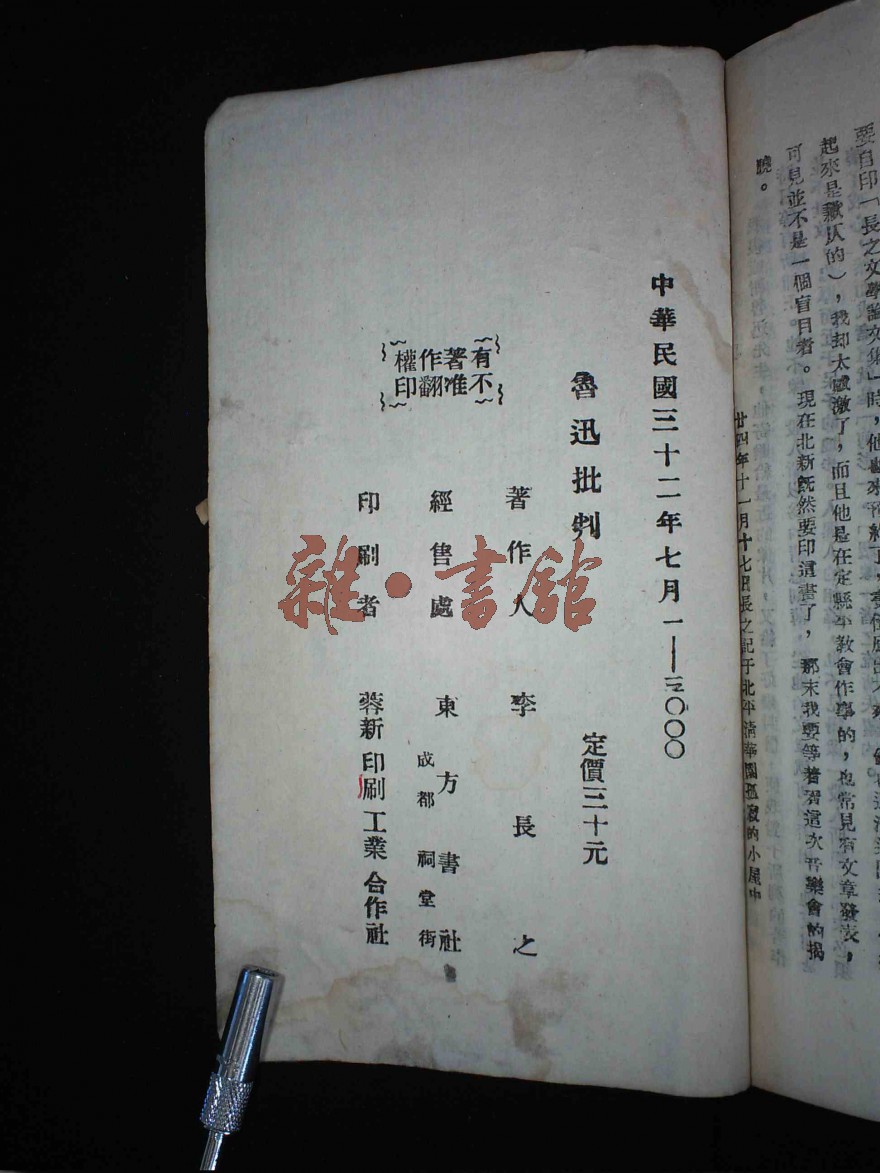 要自印「長之文學論文集」時，
起來是歉仄的），我却太感激了，而且他是在定縣平教會作事的，也常見有文章發表，
可見並不是一個盲目者。現在北新既然要印這書了，那末我要等着看這次音樂會的揭
曉。
廿四年十一月十七日長之記于北平清華園孤寂的小屋中
中華民國三十二年七月一——三〇〇〇
魯迅批判 定價三十元
有著作權
不准翻印
著作人 李長之
經售處 東方書社
成都祠堂街
印刷者 蓉新印刷工業合作社
雜·書館